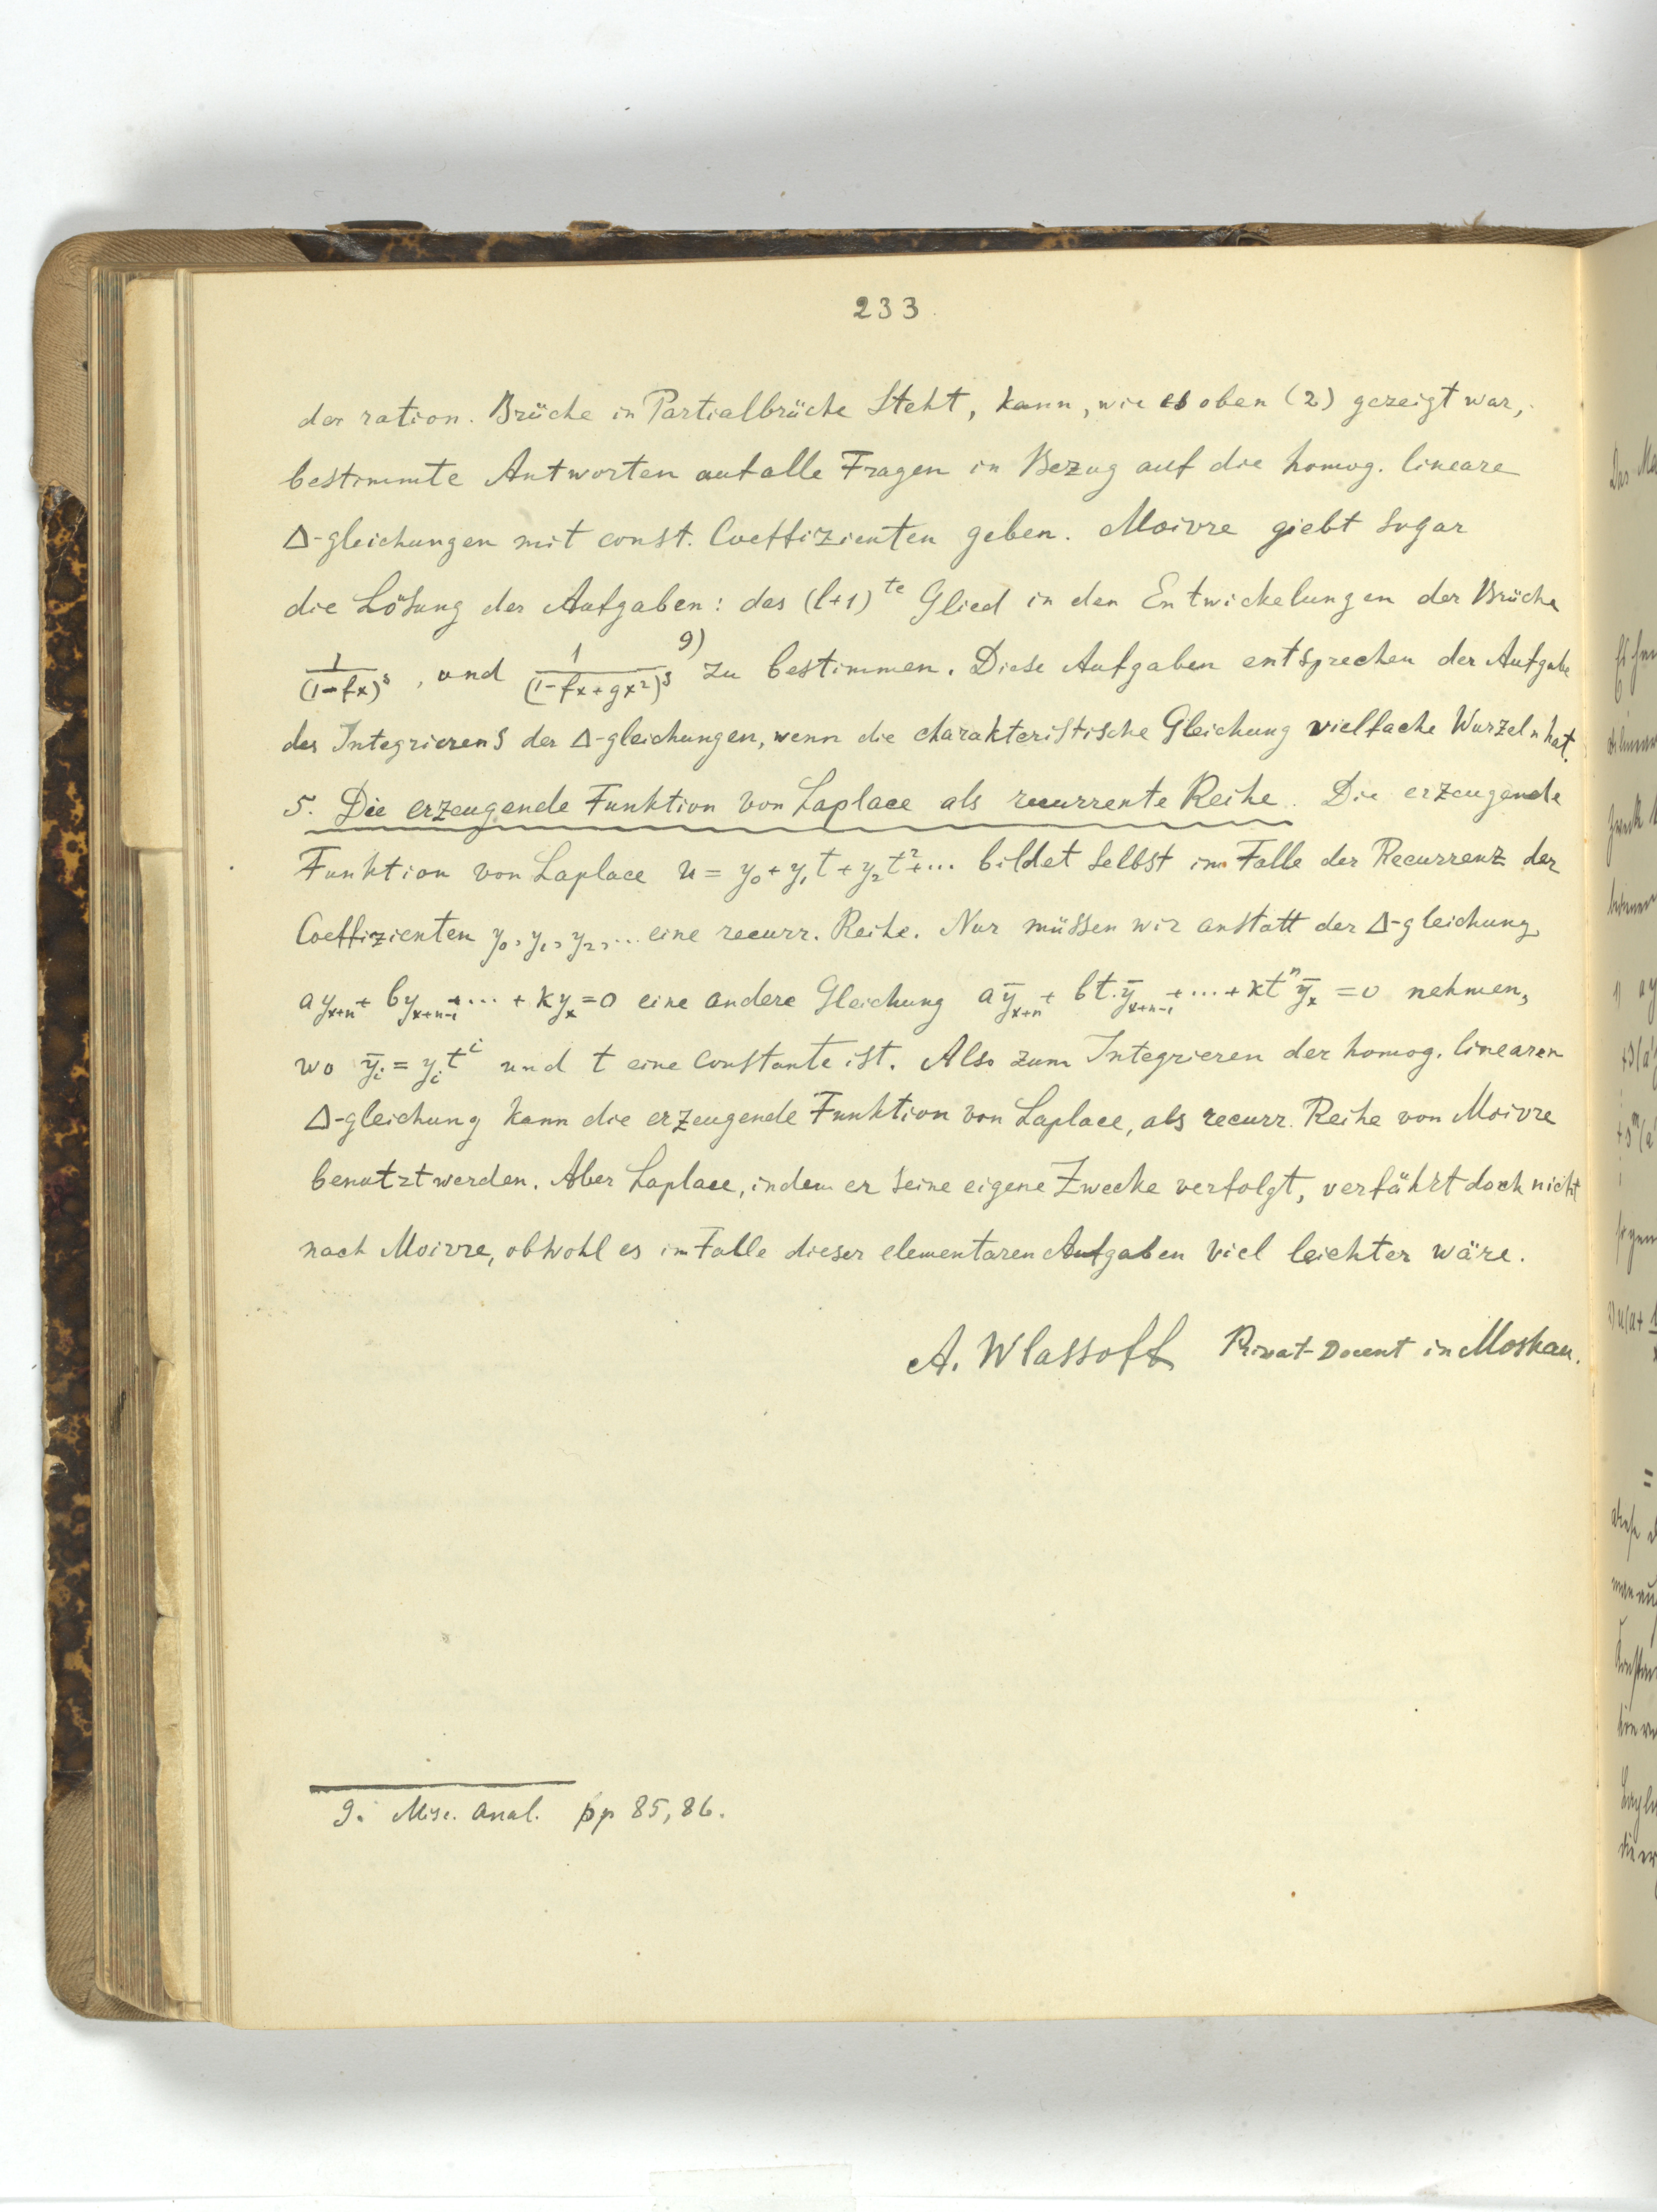 233
der ration. Brüche in Partialbrüche steht, kann, wie es oben (2) gezeigt war,
bestimmte Antworten auf alle Fragen in Bezug auf die homog. lineare
Δ-gleichungen mit const. Coeffizienten geben. Moivre giebt sogar
die Lösung der Aufgaben: das (l+1)te Glied in den Entwickelungen der Brüche
1/(1-fx)^s, und 1/(1-fx+gx²)^s 9) zu bestimmen. Diese Aufgaben entsprechen der Aufgabe
des Integrierens der Δ-gleichungen, wenn die charakteristische Gleichung vielfache Wurzeln hat.
5. Die erzeugende Funktion von Laplace als recurrente Reihe. Die erzeugende
Funktion von Laplace u = y₀ + y₁t + y₂t² + ... bildet selbst im Falle der Recurrenz der
Coeffizienten y₀, y₁, y₂, ... eine recurr. Reihe. Nur müssen wir anstatt der Δ-gleichung
ay_{x+n} + by_{x+n-1} + ... + ky_x = 0 eine andere Gleichung aȳ_{x+n} + bt.ȳ_{x+n-1} + ... + kt^n ȳ_x = 0 nehmen,
wo ȳ_i = y_i t^i und t eine Constante ist. Also zum Integrieren der homog. linearen
Δ-gleichung kann die erzeugende Funktion von Laplace, als recurr. Reihe von Moivre
benutzt werden. Aber Laplace, indem er seine eigene Zwecke verfolgt, verfährt doch nicht
nach Moivre, obwohl es im Falle dieser elementaren Aufgaben viel leichter wäre.
A. Wlassoff Privat-Docent in Moskau.
9. Misc. anal. pp 85, 86.